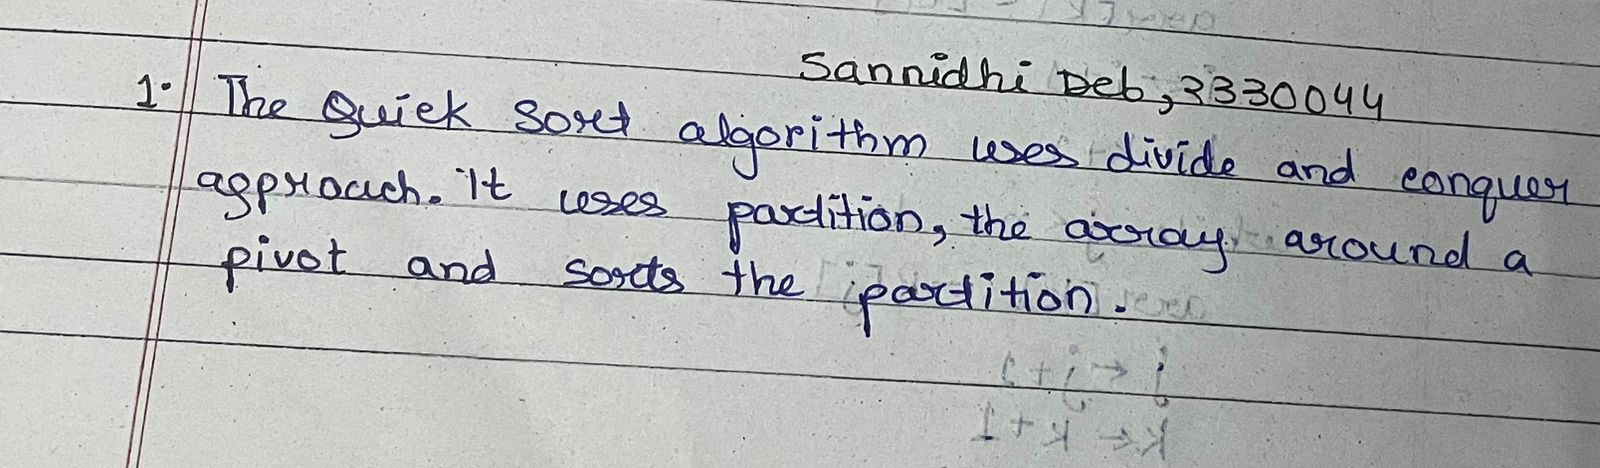 Sannidhi Deb, 3330044
1. The Quick Sort algorithm uses divide and conquer
approach. It uses partition, the array around a
pivot and sorts the partition.
j ← j+1
k ← k+1